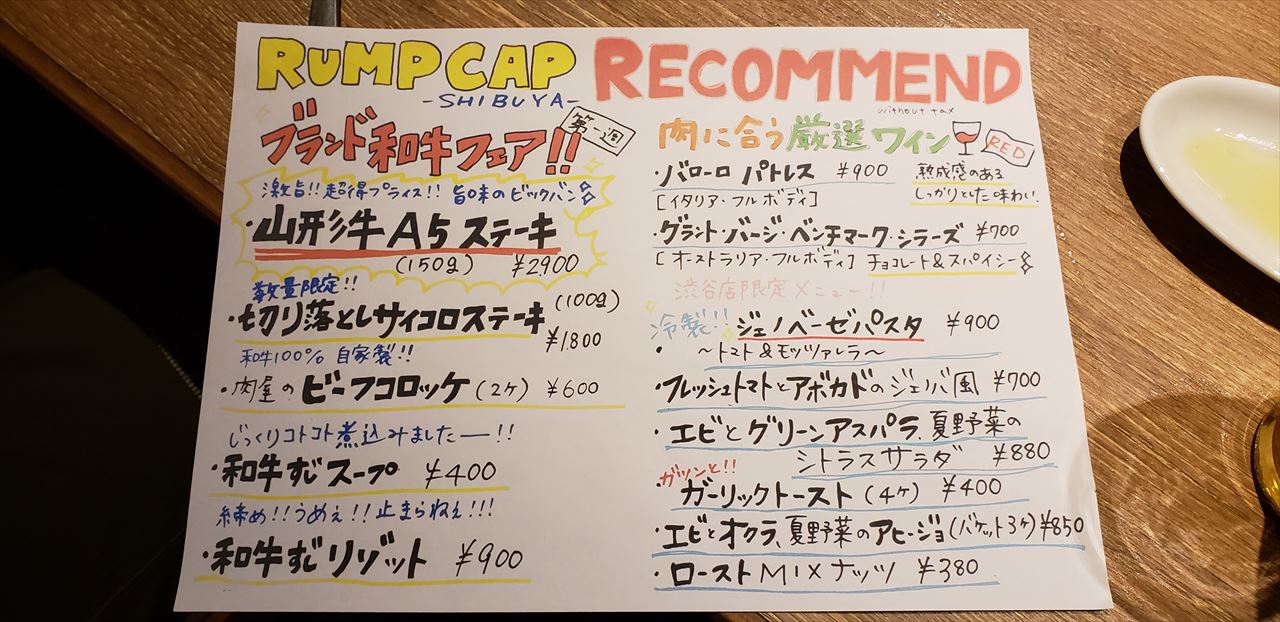 RUMPCAP RECOMMEND
-SHIBUYA-
without tax
ブランド和牛フェア!!
第一週
激旨!!超得プライス!! 旨味のビックバン
・山形牛A5ステーキ
(150g) ¥2900
数量限定!!
・切り落としサイコロステーキ (100g)
¥1800
和牛100% 自家製!!
・肉屋のビーフコロッケ(2ヶ) ¥600
じっくりコトコト煮込みましたー!!
・和牛すじスープ ¥400
締め!!うめぇ!!止まらねぇ!!!
・和牛すじリゾット ¥900
肉に合う厳選ワイン
RED
・バローロ パトレス ¥900
[イタリア・フルボディ]
熟成感のある
しっかりとした味わい
・グラント・バージ・ベンチマーク・シラーズ ¥700
[オーストラリア・フルボディ] チョコレート&スパイシー
渋谷店限定メニュー!!
冷製!! ジェノベーゼパスタ ¥900
・ ～トマト&モッツァレラ～
・フレッシュトマトとアボカドのジェノバ風 ¥700
・エビとグリーンアスパラ、夏野菜の
シトラスサラダ ¥880
ガツンと!!
・ガーリックトースト(4ヶ) ¥400
・エビとオクラ、夏野菜のアヒージョ(バケット3ヶ)¥850
・ローストMIXナッツ ¥380